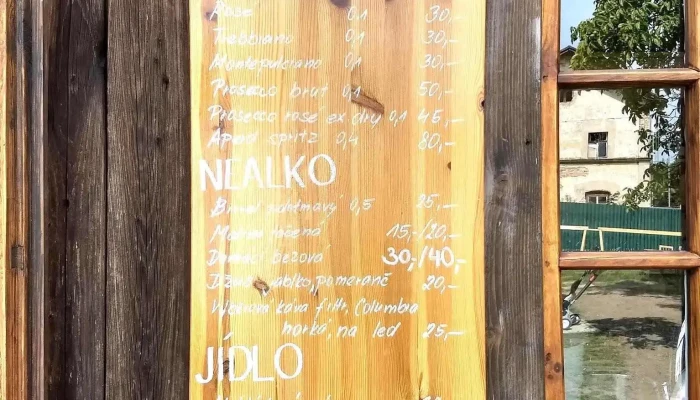 Rosé 0,1 30,-
Trebbiano 0,1 30,-
Montepulciano 0,1 30,-
Prosecco brut 0,1 50,-
Prosecco rosé ex dry 0,1 45,-
Aperol spritz 0,4 80,-
NEALKO
0,5 25,-
točená 15,-/20,-
Domácí bezová 30,-/40,-
Džus jablko, pomeranč 20,-
káva filtr, Columbia
horká, na led 25,-
JÍDLO